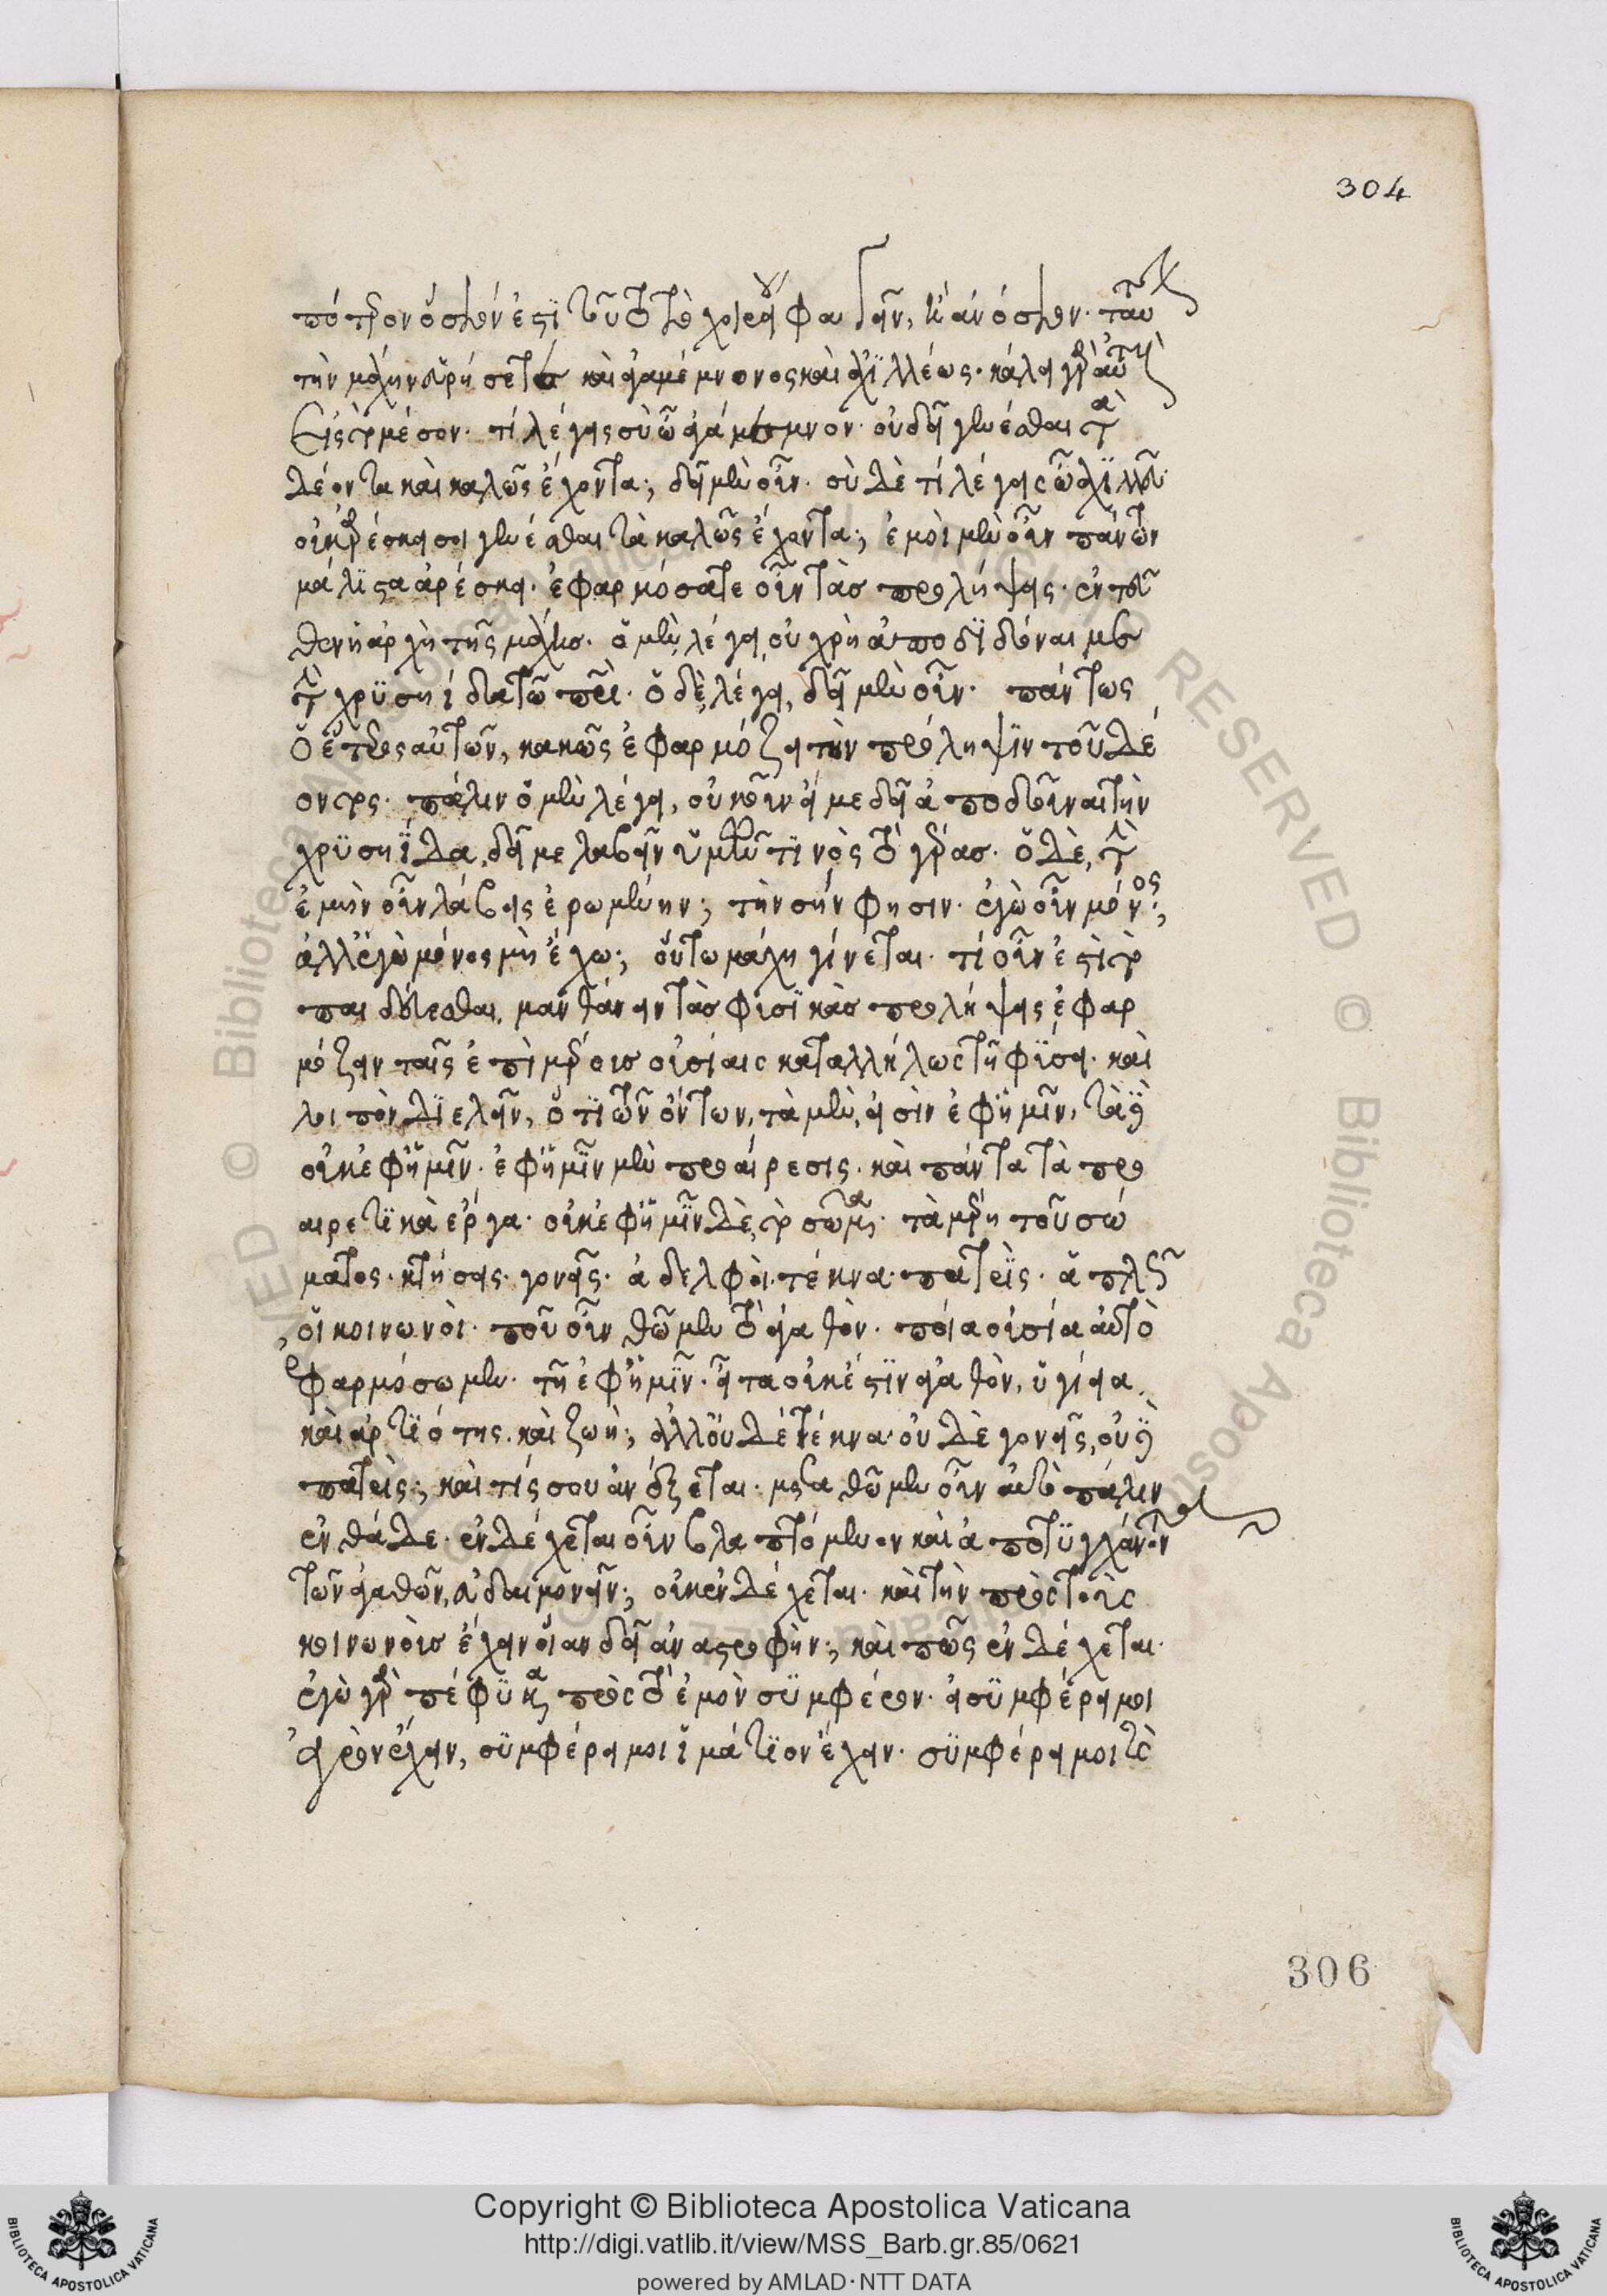 πότερον ὅσιόν ἐστι τοῦτο τὸ χοιρείου φαγεῖν, ἢ ἀνόσιον· ταύτην
τὴν μάχην εὑρήσετε καὶ ἀγαμέμνονος καὶ ἀχιλλέως· κάλει γὰρ αὐτοὺς
εἰς τὸ μέσον· τί λέγεις σὺ ὦ ἀγάμεμνον· οὐ δεῖ γενέσθαι τὰ
δέοντα καὶ καλῶς ἔχοντα; δεῖ μὲν οὖν· σὺ δὲ τί λέγεις ὦ ἀχιλλεῦ·
οὐκ ἀρέσκει σοι γενέσθαι τὰ καλῶς ἔχοντα; ἐμοὶ μὲν οὖν πάντων
μάλιστα ἀρέσκει· ἐφαρμόσατε οὖν τὰς προλήψεις· ἐντεῦ
θεν ἡ ἀρχὴ τῆς μάχης· ὁ μὲν λέγει, οὐ χρὴ ἀποδιδόναι με
τὴν χρυσηίδα τῷ πατρί· ὁ δὲ λέγει, δεῖ μὲν οὖν· πάντως
ὁ ἕτερος αὐτῶν, κακῶς ἐφαρμόζει τὴν πρόληψιν τοῦ δέ
οντος· πάλιν ὁ μὲν λέγει, οὐκοῦν εἴ με δεῖ ἀποδοῦναι τὴν
χρυσηίδα, δεῖ με λαβεῖν ὑμῶν τινὸς τὸ γέρας· ὁ δὲ, τὴν
ἐμὴν οὖν λάβῃς ἐρωμένην; τὴν σήν φησιν· ἐγὼ οὖν μόνος;
ἀλλ' ἐγὼ μόνος μὴ ἔχω; οὕτω μάχη γίνεται· τί οὖν ἐστὶ τὸ
παιδεύεσθαι, μανθάνειν τὰς φυσικὰς προλήψεις ἐφαρ
μόζειν ταῖς ἐπὶ μέρους οὐσίαις καταλλήλως τῇ φύσει· καὶ
λοιπὸν διελεῖν, ὅτι τῶν ὄντων, τὰ μὲν, εἰσὶν ἐφ' ἡμῖν, τὰ δὲ
οὐκ ἐφ' ἡμῖν· ἐφ' ἡμῖν μὲν προαίρεσις· καὶ πάντα τὰ προ
αιρετικὰ ἔργα· οὐκ ἐφ' ἡμῖν δὲ, τὸ σῶμα· τὰ μέρη τοῦ σώ
ματος· κτήσεις· γονεῖς· ἀδελφοὶ· τέκνα· πατρίς· ἁπλῶς
οἱ κοινωνοὶ· ποῦ οὖν θῶμεν τὸ ἀγαθόν· ποίᾳ οὐσίᾳ αὐτὸ
ἐφαρμόσωμεν· τῇ ἐφ' ἡμῖν· εἶτα οὐκ ἔστιν ἀγαθόν, ὑγίεια,
καὶ ἀρτιότης· καὶ ζωή; ἀλλ' οὐδὲ τέκνα· οὐδὲ γονεῖς, οὐδὲ
πατρίς; καὶ τίς σου ἀνέξεται· μεταθῶμεν οὖν αὐτὸ πάλιν
ἐνθάδε· ἐνδέχεται οὖν βλαπτόμενον καὶ ἀποτυγχάνοντα
τῶν ἀγαθῶν, εὐδαιμονεῖν; οὐκ ἐνδέχεται· καὶ τὴν πρὸς τοὺς
κοινωνοὺς ἔχειν οἵαν δεῖ ἀναστροφήν; καὶ πῶς ἐνδέχεται·
ἐγὼ γὰρ πέφυκα πρὸς τὸ ἐμὸν συμφέρον· εἰ συμφέρει μοι
ἀγρὸν ἔχειν, συμφέρει μοι ἱμάτιον ἔχειν· συμφέρει μοι τὸ
304
306
Copyright © Biblioteca Apostolica Vaticana
http://digi.vatlib.it/view/MSS_Barb.gr.85/0621
powered by AMLAD·NTT DATA